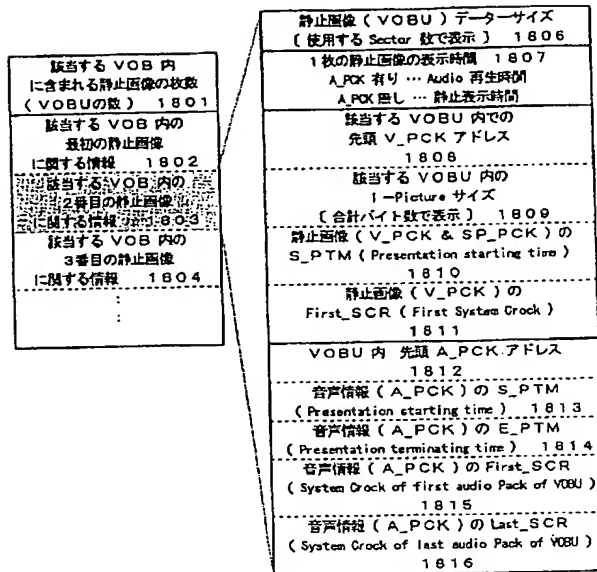 該当する VOB 内
に含まれる静止画像の枚数
( VOBUの数 ) 1801
該当する VOB 内の
最初の静止画像
に関する情報 1802
該当する VOB 内の
2番目の静止画像
関する情報 1803
該当する VOB 内の
3番目の静止画像
に関する情報 1804
:
:
静止画像 ( VOBU ) データーサイズ
[ 使用する Sector 数で表示 ] 1806
1枚の静止画像の表示時間 1807
A_PCK 有り … Audio 再生時間
A_PCK 無し … 静止表示時間
該当する VOBU 内での
先頭 V_PCK アドレス
1808
該当する VOBU 内の
I-Picture サイズ
[ 合計バイト数で表示 ] 1809
静止画像 ( V_PCK & SP_PCK ) の
S_PTM ( Presentation starting time )
1810
静止画像 ( V_PCK ) の
First_SCR ( First System Crock )
1811
VOBU 内 先頭 A_PCK アドレス
1812
音声情報 ( A_PCK ) の S_PTM
( Presentation starting time ) 1813
音声情報 ( A_PCK ) の E_PTM
( Presentation terminating time ) 1814
音声情報 ( A_PCK ) の First_SCR
( System Crock of first audio Pack of VOBU )
1815
音声情報 ( A_PCK ) の Last_SCR
( System Crock of last audio Pack of VOBU )
1816